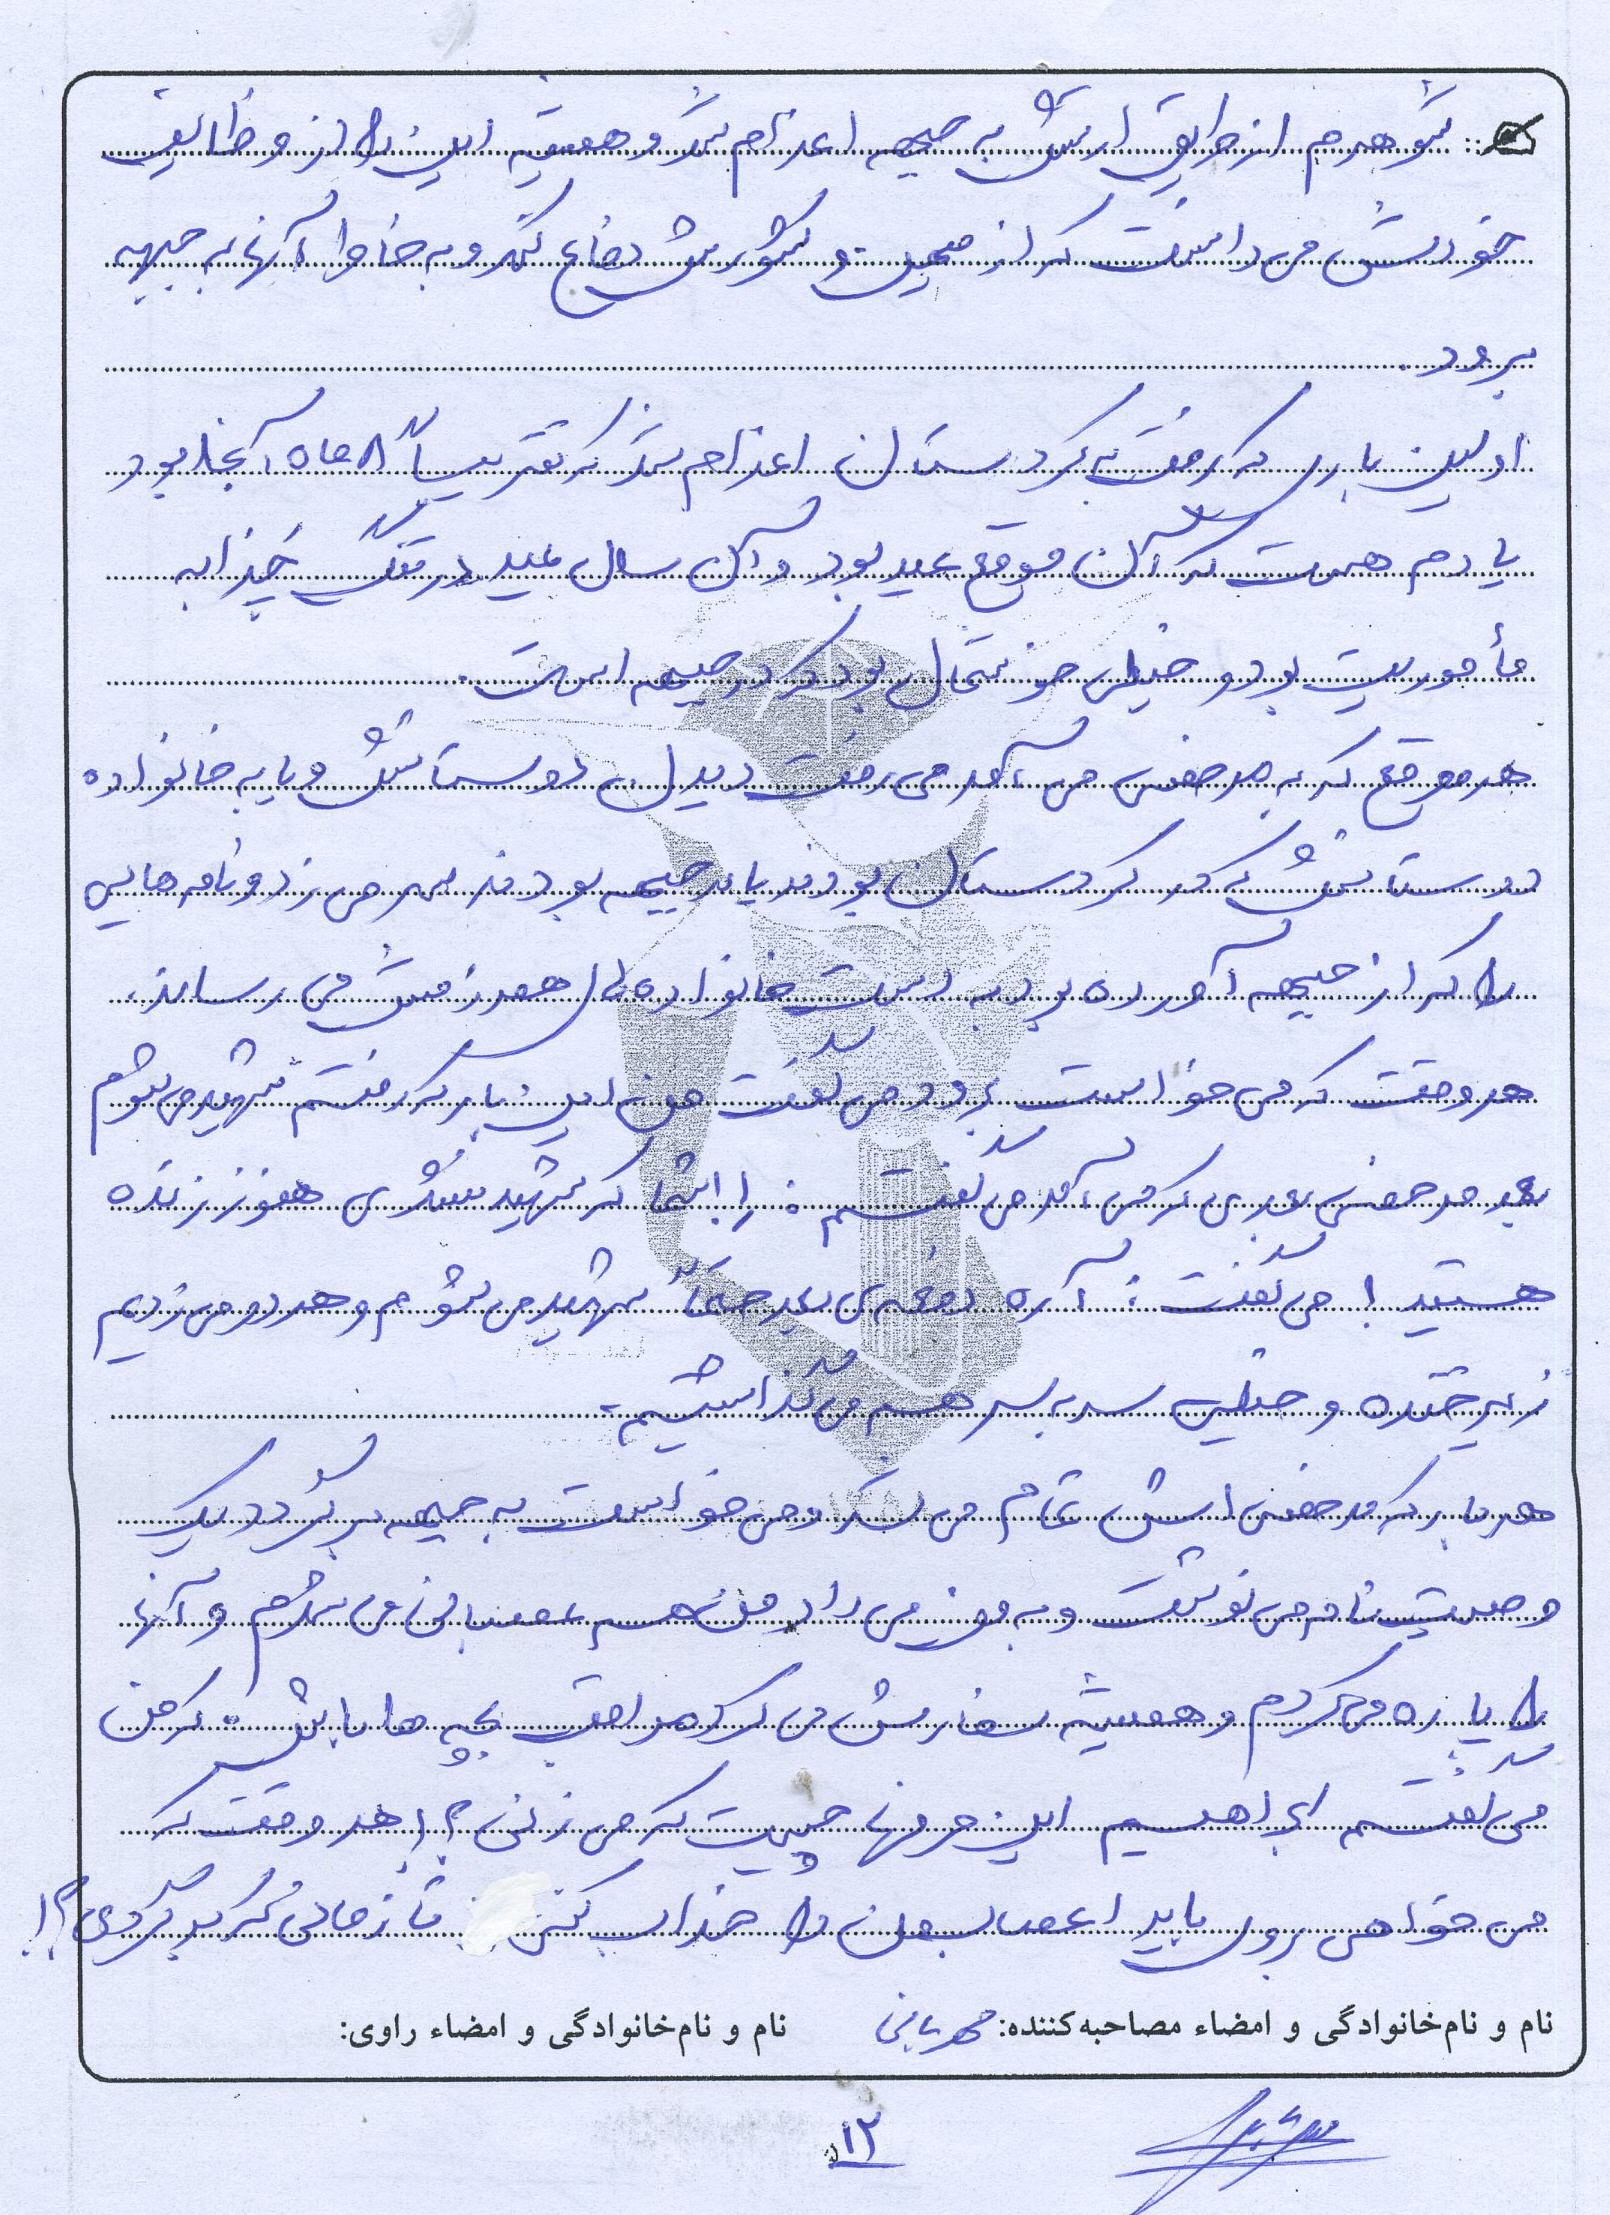 شوهرم از طریق ارتش به جبهه اعزام شد و همیشه این را از وظایف
خودش می دانست که از میهن و کشورش دفاع کند و به خاطر آنها به جبهه
برود.
اولین بار که رفت به کردستان اعزام شد که تقریباً ۸ ماه آنجا بود
یادم هست که آن موقع عید بود و آن سال عید در تنگ چزابه
مأموریت بود و خیلی خوشحال بود که در جبهه است.
هر موقع که به مرخصی می آمد می رفت دیدن دوستانش و یا به خانواده
دوستانش که در کردستان بودند یا در جبهه بودند سر می زد و نامه هایی
را که از جبهه آورده بود به دست خانواده های همرزمش می رساند.
هر وقت که می خواست برود می گفت من این بار که رفتم شهید می شوم
بعد مرخصی بعدی که می آمد می گفتم: ! شما که شهید نشدی هنوز زنده
هستید! می گفت: آره دفعه ی بعد حتماً شهید می شوم و هر دو می زدیم
زیر خنده و خیلی سر به سر هم می گذاشتیم.
هر بار که مرخصی اش تمام می شد و می خواست به جبهه برگردد یک
وصیت نامه می نوشت و به من می داد من هم عصبانی می شدم و آنها
را پاره می کردم و همیشه سفارش می کرد مراقب بچه ها باش. که من
می گفتم ابراهیم این حرفها چیست که می زنی؟! هر وقت که
می خواهی بروی باید اعصاب من را خراب کنی تا زمانی که برگردی؟!
نام و نام‌خانوادگی و امضاء مصاحبه‌کننده: مهربانی نام و نام‌خانوادگی و امضاء راوی:
۱۲